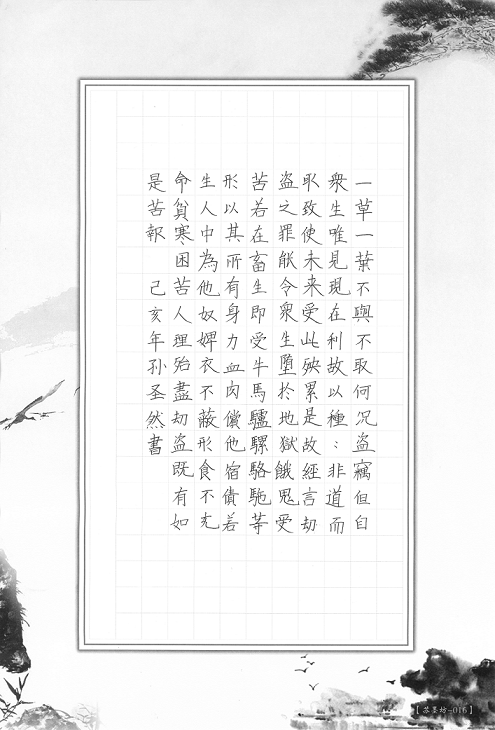 一草一葉不與不取何况盗竊但自
衆生唯見現在利故以種〻非道而
取致使未来受此殃累是故經言劫
盗之罪能令衆生墮於地獄餓鬼受
苦若在畜生即受牛馬驢騾駱駞等
形以其所有身力血肉償他宿債若
生人中為他奴婢衣不蔽形食不充
命貧寒困苦人理殆盡劫盗既有如
是苦報 己亥年孙圣然書
【苏墨坊-016】